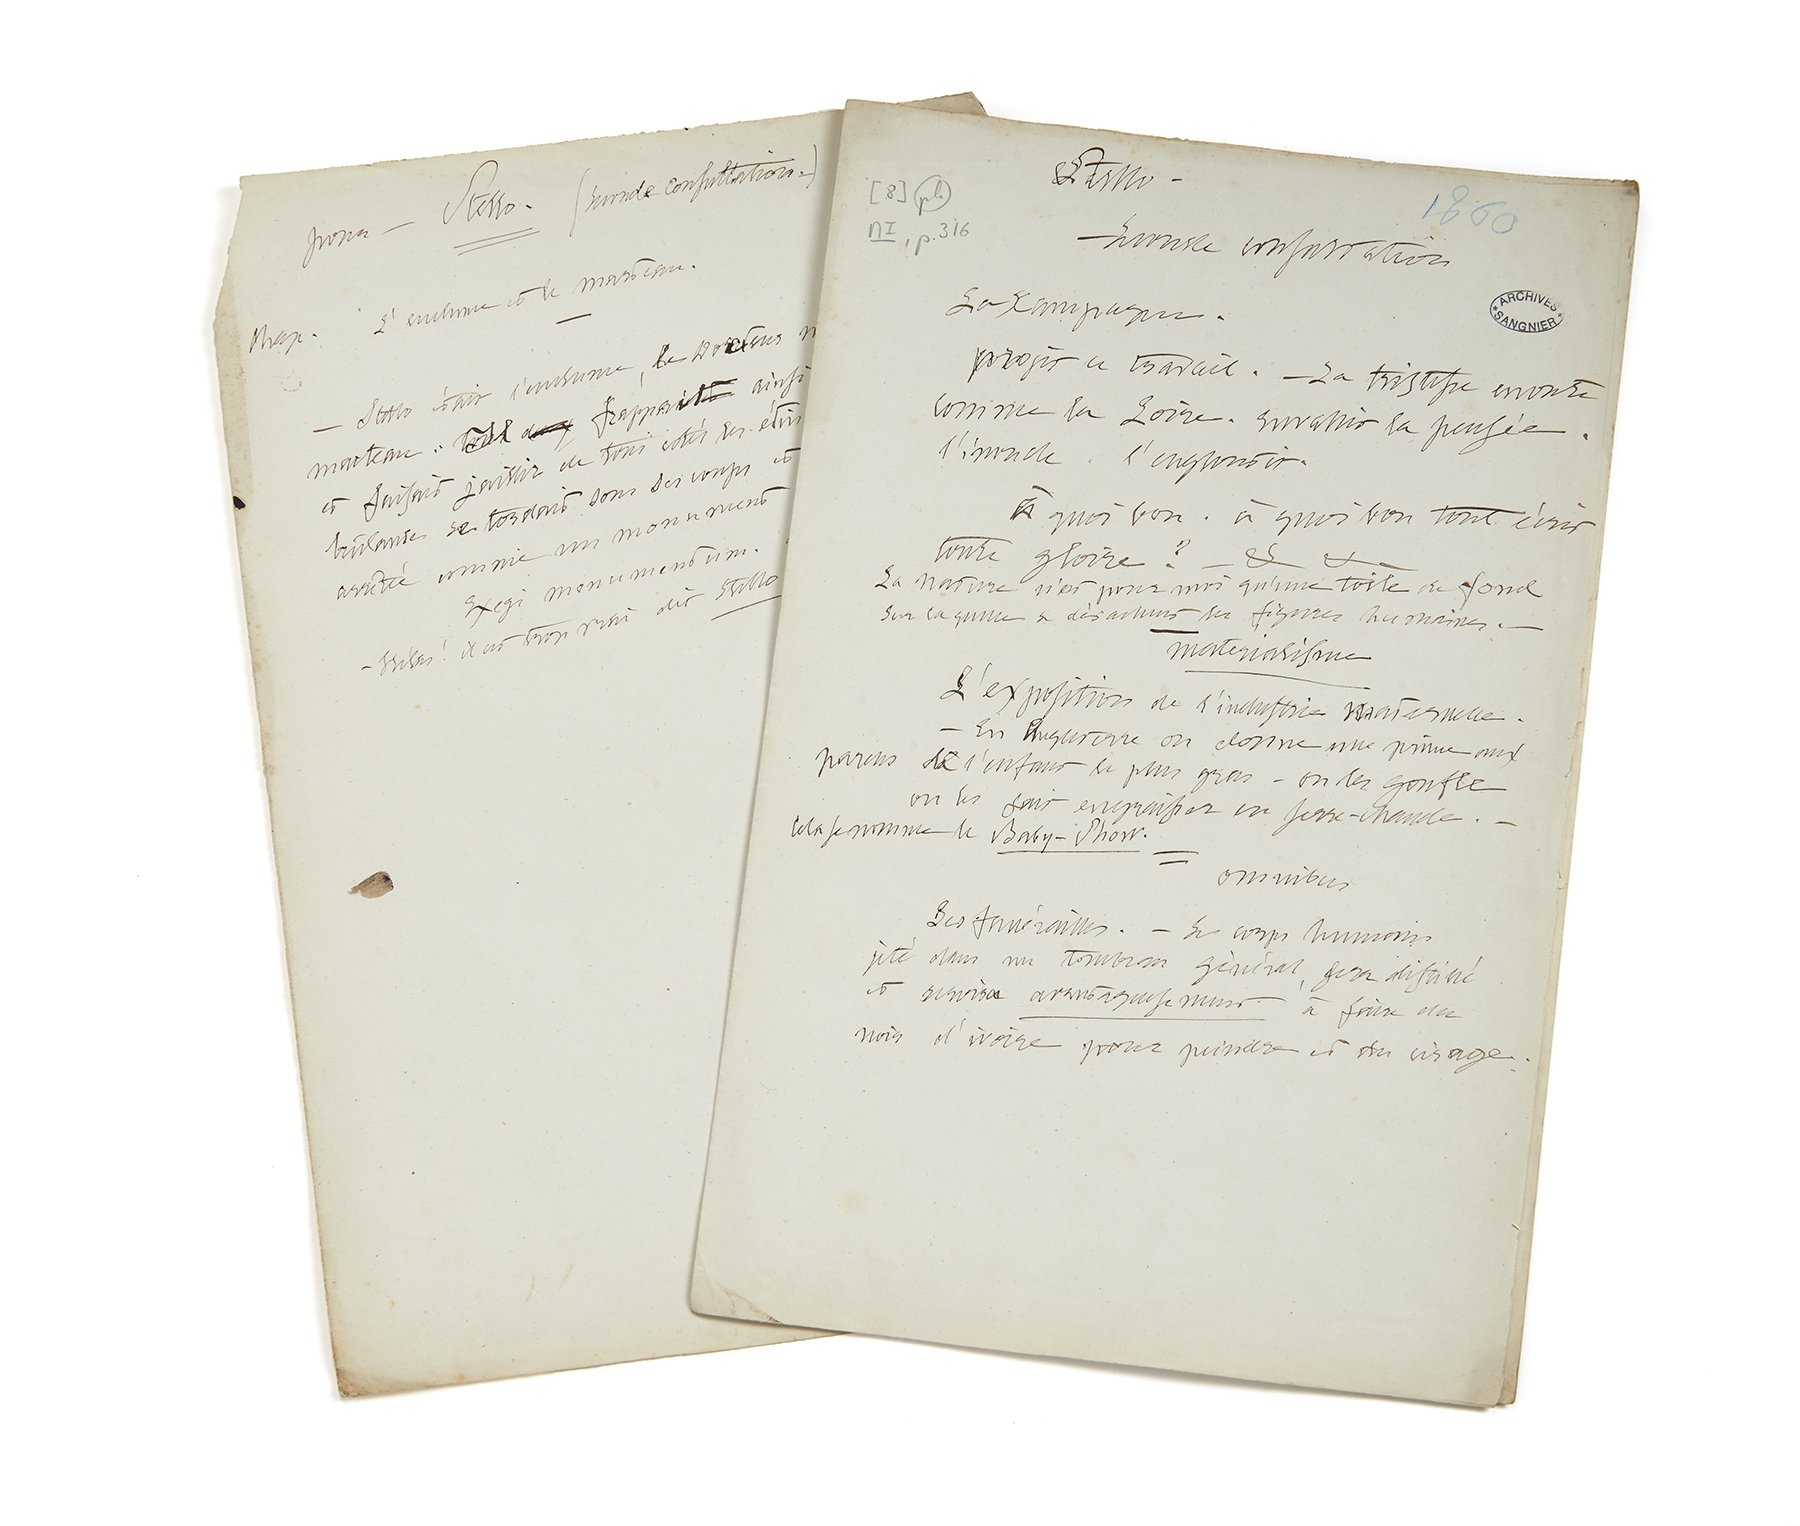 pour — Stello. (seconde consultation.)
chap. L'enclume et le marteau.
— Stello était l'enclume, le Docteur
marteau. frappait ainsi
et faisait jaillir de tous côtés les
brûlantes se tordait sous ses coups et
comme un monument
Exegi monumentum.
— Hélas! il est trop vrai dit Stello
[8] pl.
nI, p. 316
Stello —
1860
— Seconde consultation
ARCHIVES SANGNIER
La Campagne.
projet de travail. — La tristesse monte
comme la Loire. envahir la pensée.
l'inonde. l'engloutir.
à quoi bon. à quoi bon tout écrit
toute gloire? — & & —
La nature n'est pour moi qu'une toile de fond
sur laquelle se détachent les figures humaines. —
matérialisme
L'exposition de l'industrie maternelle.
— En Angleterre on donne une prime aux
parens de l'enfant le plus gras — on les gonfle
on les fait engraisser en serre-chaude. —
cela se nomme le Baby-Show.
omnibus
Les funérailles. — Le corps humain
jeté dans un tombeau général, sera distillé
et servira avantageusement à faire du
noir d'ivoire pour peindre et du cirage.